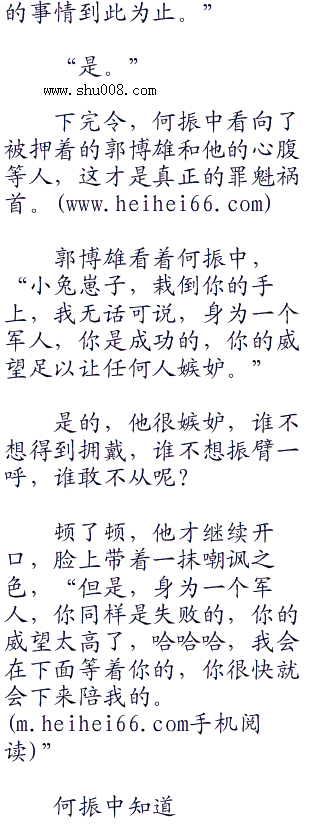 的事情到此为止。”
“是。”
www.shu008.com
下完令，何振中看向了
被押着的郭博雄和他的心腹
等人，这才是真正的罪魁祸
首。(www.heihei66.com)
郭博雄看着何振中，
“小兔崽子，栽倒你的手
上，我无话可说，身为一个
军人，你是成功的，你的威
望足以让任何人嫉妒。”
是的，他很嫉妒，谁不
想得到拥戴，谁不想振臂一
呼，谁敢不从呢？
顿了顿，他才继续开
口，脸上带着一抹嘲讽之
色，“但是，身为一个军
人，你同样是失败的，你的
威望太高了，哈哈哈，我会
在下面等着你的，你很快就
会下来陪我的。
(m.heihei66.com手机阅
读)”
何振中知道